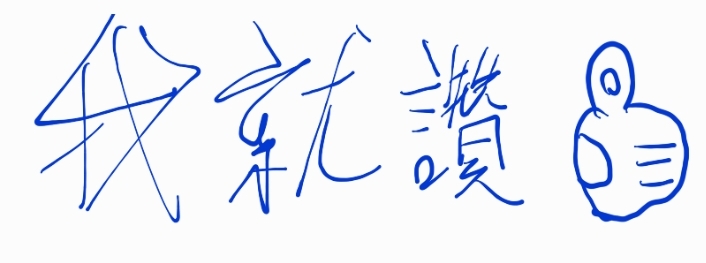 我就讚